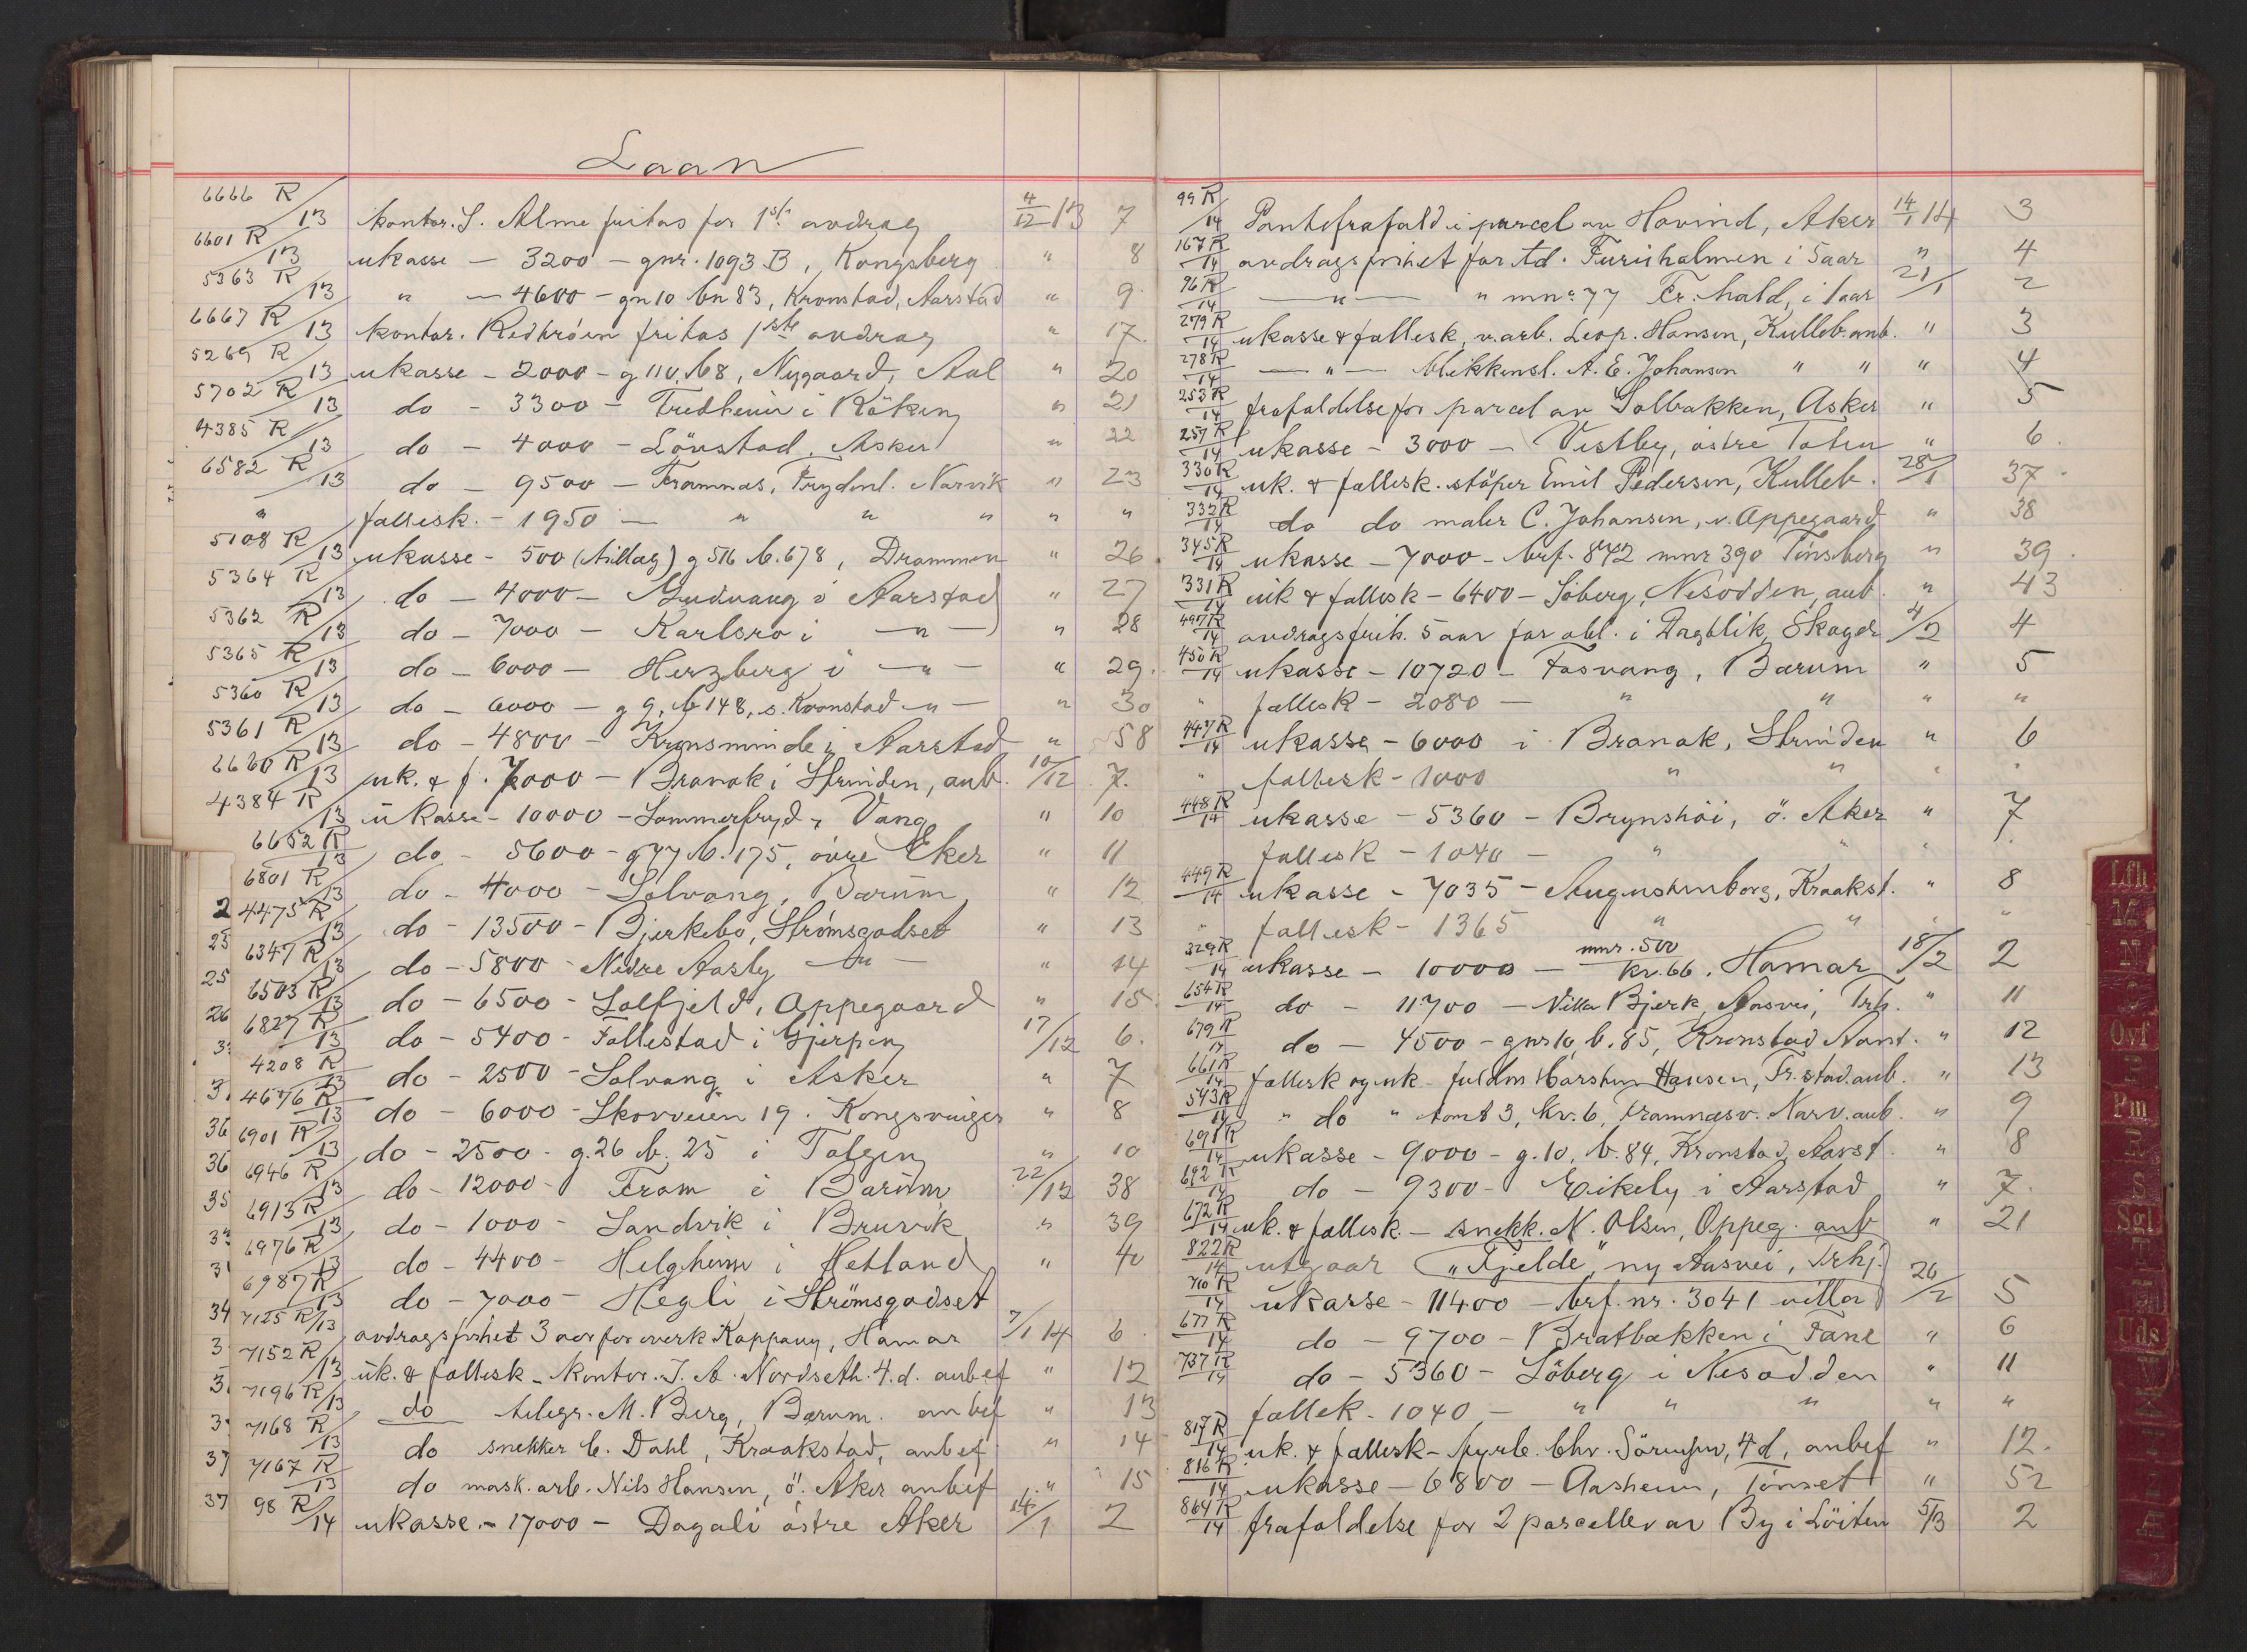 Laan
6666 R/13 kontor. S. Alme fritas for 1ste avdrag 4/12 13 7
6601 R/13 ukasse - 3200 - gnr. 1093 B, Kongsberg " 8
5363 R/13 " - 4600 - gn 10 bn 83, Kronstad, Aarstad " 9
6667 R/13 kontor. Redbröen fritas 1ste avdrag " 17.
5269 R/13 ukasse - 2000 - g 110, b 8, Nygaard, Aal " 20
5702 R/13 do - 3300 - Fredheim i Röken " 21
4385 R/13 do - 4000 - Lönstad, Asker " 22
6582 R/13 do - 9500 - Framnæs, Frydenl. Narvik " 23
" fællesk. - 1950 - " " " " "
5108 R/13 ukasse - 500 (tillæg) g 516 b. 678, Drammen " 26.
5364 R/13 do - 4000 - Gudvang i Aarstad " 27
5362 R/13 do - 7000 - Karlsro i - " - " 28
5365 R/13 do - 6000 - Herzberg i - " - " 29.
5360 R/13 do - 6000 - g 9, b 148, s. Kronstad - " - " 30
5361 R/13 do - 4800 - Kronsminde i Aarstad " 58
6660 R/13 uk. & f. 7000 - Branak i Strinden, anb. 10/12 7.
4384 R/13 ukasse - 10000 - Sommerfryd, Vang " 10
6652 R/13 do - 5600 - g 77 b. 175, övre Eker " 11
6801 R/13 do - 4000 - Solvang, Bærum " 12
4475 R/13 do - 13500 - Bjerkebo, Strömsgodset " 13
6347 R/13 do - 5800 - Nedre Aasly - " - " 14
6503 R/13 do - 6500 - Solfjeld, Oppegaard " 15.
6827 R/13 do - 5400 - Follestad i Gjerpen 17/12 6.
4208 R/13 do - 2500 - Solvang i Asker " 7
4676 R/13 do - 6000 - Skovveien 19. Kongsvinger " 8
6901 R/13 do - 2500 - g. 26 b. 25 i Tolgen " 10
6946 R/13 do - 12000 - Fram i Bærum 22/12 38
6913 R/13 do - 1000 - Sandvik i Bruvik " 39
6976 R/13 do - 4400 - Helgheim i Hetland " 40
6987 R/13 do - 7000 - Hegli i Strömsgodset
7125 R/13 avdragsfrihet 3 aar for overk Kappang, Hamar 7/1 14 6.
7152 R/13 uk. & fællesk - kontor. J. A. Nordseth. 4. d. anbef " 12
7196 R/13 do telegr. M. Berg, Bærum. anbef " 13
7168 R/13 do snekker C. Dahl, Kraakstad, anbef " 14
7167 R/13 do mask. arb. Nils Hansen, ö. Aker anbef " 15
98 R/14 ukasse - 17000 - Dagali östre Aker 14/1 2
99 R/14 Pantefrafald i parcel av Hovind, Aker 14/1 14 3
167 R/14 avdragsfrihet for td. Furuholmen i 5 aar " 4
96 R/14 - " - " mnr 77 Fr. hald, i 1 aar 21/1 2
279 R/14 ukasse & fællesk, v. arb. Leop. Hansen, Kulleb. anb. " 3
278 R/14 - " - blikkensl. A. E. Johansen " " " 4
253 R/14 frafaldelse for parcel av Solbakken, Asker " 5
257 R/14 ukasse - 3000 - Vestby, östre Toten " 6.
330 R/14 uk. & fællesk. stöper Emil Pedersen, Kulleb. 28/1 37
332 R/14 do do maler C. Johansen, v. Oppegaard " 38
345 R/14 ukasse - 7000 - brf. 872 mnr 390 Tönsberg " 39.
331 R/14 uk & fællesk - 6400 - Söberg, Nesodden, anb. " 43
497 R/14 avdragsfrih. 5 aar for obl. i Dagblik, Skoger 4/2 4
450 R/14 ukasse - 10720 - Fosvang, Bærum " 5
" fællesk - 2080 - " " " "
447 R/14 ukasse - 6000 i Branak, Strinden " 6
" fællesk - 1000 " " " "
448 R/14 ukasse - 5360 - Brynshöi, ö. Aker " 7
fællesk - 1040 - " " " "
449 R/14 ukasse - 7035 - Augustenborg, Kraakst. " 8
" fællesk - 1365 " " " "
329 R/14 ukasse - 10000 - mnr. 500 kv. 66. Hamar 18/2 2
654 R/14 do - 11700 - Villa Bjerk, Aasvei, Trh. " 11
679 R/14 do - 4500 - gnr 10, b. 85, Kronstad Aarst. " 12
661 R/14 fællesk og uk - fuldm Karsten Hansen, Fr.stad. anb. " 13
543 R/14 " do " tomt 3, kv. 6, Framnæsv. Narv. anb. " 9
691 R/14 ukasse - 9000 - g. 10, b. 84, Kronstad, Aarst. " 8
692 R/14 do - 9300 - Eikely i Aarstad " 7.
672 R/14 uk. & fællesk. - snekk. N. Olsen, Oppeg. anb " 21
822 R/14 utgaar "Fjelde", ny Aasvei, Trhj.
710 R/14 ukasse - 11400 - brf. nr. 3041 villa 26/2 5
677 R/14 do - 9700 - Bratbakken i Fane " 6
737 R/14 do - 5360 - Söberg i Nesodden " 11
fællek. 1040 - " " " " "
817 R/14 uk. & fællesk - fyrb. Chr. Sörensen, 4 d, anbef " 12.
816 R/14 ukasse - 6800 - Aasheim, Tönset " 52
864 R/14 frafaldelse for 2 parceller av By i Löiten 5/3 2
Lfh
M
N
Ovf
Pm
R
S
Sgl
T
Uds
V